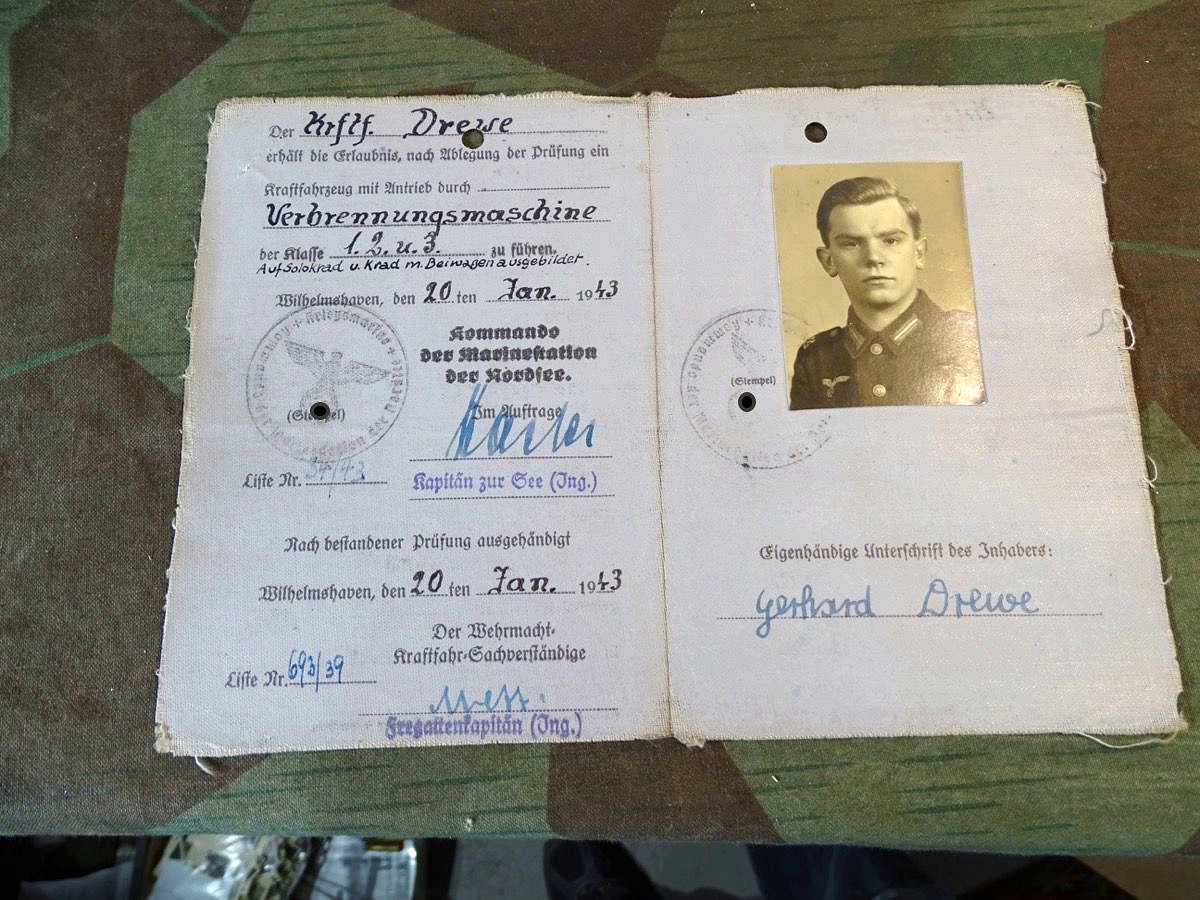 Der Krftf. Drewe
erhält die Erlaubnis, nach Ablegung der Prüfung ein
Kraftfahrzeug mit Antrieb durch
Verbrennungsmaschine
der Klasse 1. 2. u. 3. zu führen.
Auf Solokrad u. Krad m. Beiwagen ausgebildet.
Wilhelmshaven, den 20 ten Jan. 1943
Kommando
der Marinestation
der Nordsee.
(Stempel)
Im Auftrage
Liste Nr. 34/43
Kapitän zur See (Ing.)
Nach bestandener Prüfung ausgehändigt
Wilhelmshaven, den 20 ten Jan. 1943
Der Wehrmacht-
Kraftfahr-Sachverständige
Liste Nr. 693/39
Fregattenkapitän (Ing.)
(Stempel)
Eigenhändige Unterschrift des Inhabers:
Gerhard Drewe